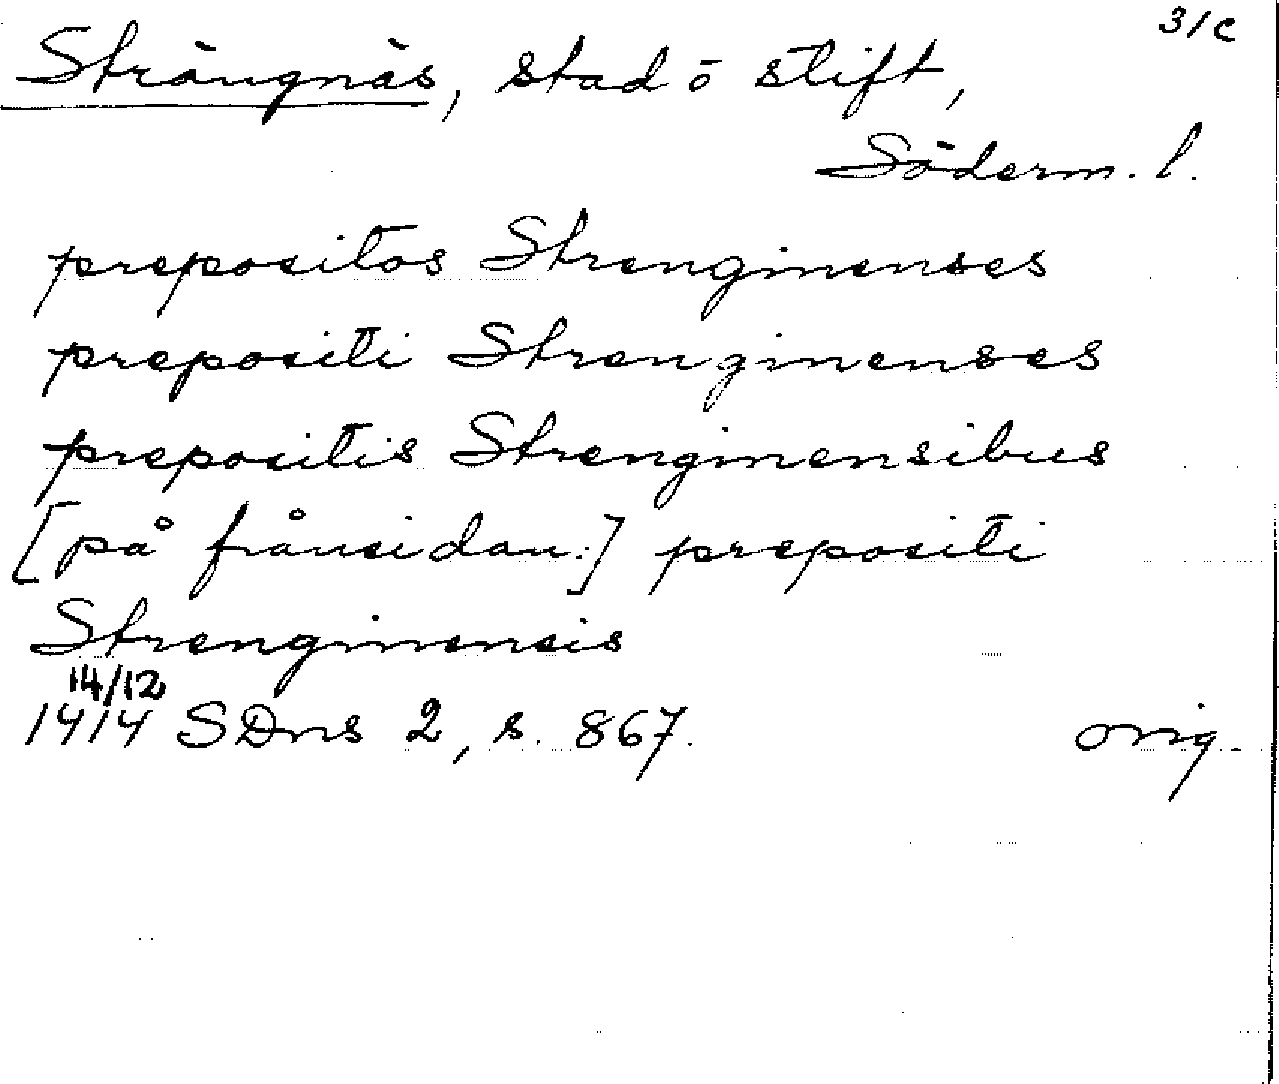 31c
Strängnäs, stad o stift,
Söderm. l.
prepositos Strenginenses
prepositi Strenginenses
prepositis Strenginensibus
[på frånsidan:] prepositi
Strenginensis
14/12
1414 SDns 2, s. 867.
orig.